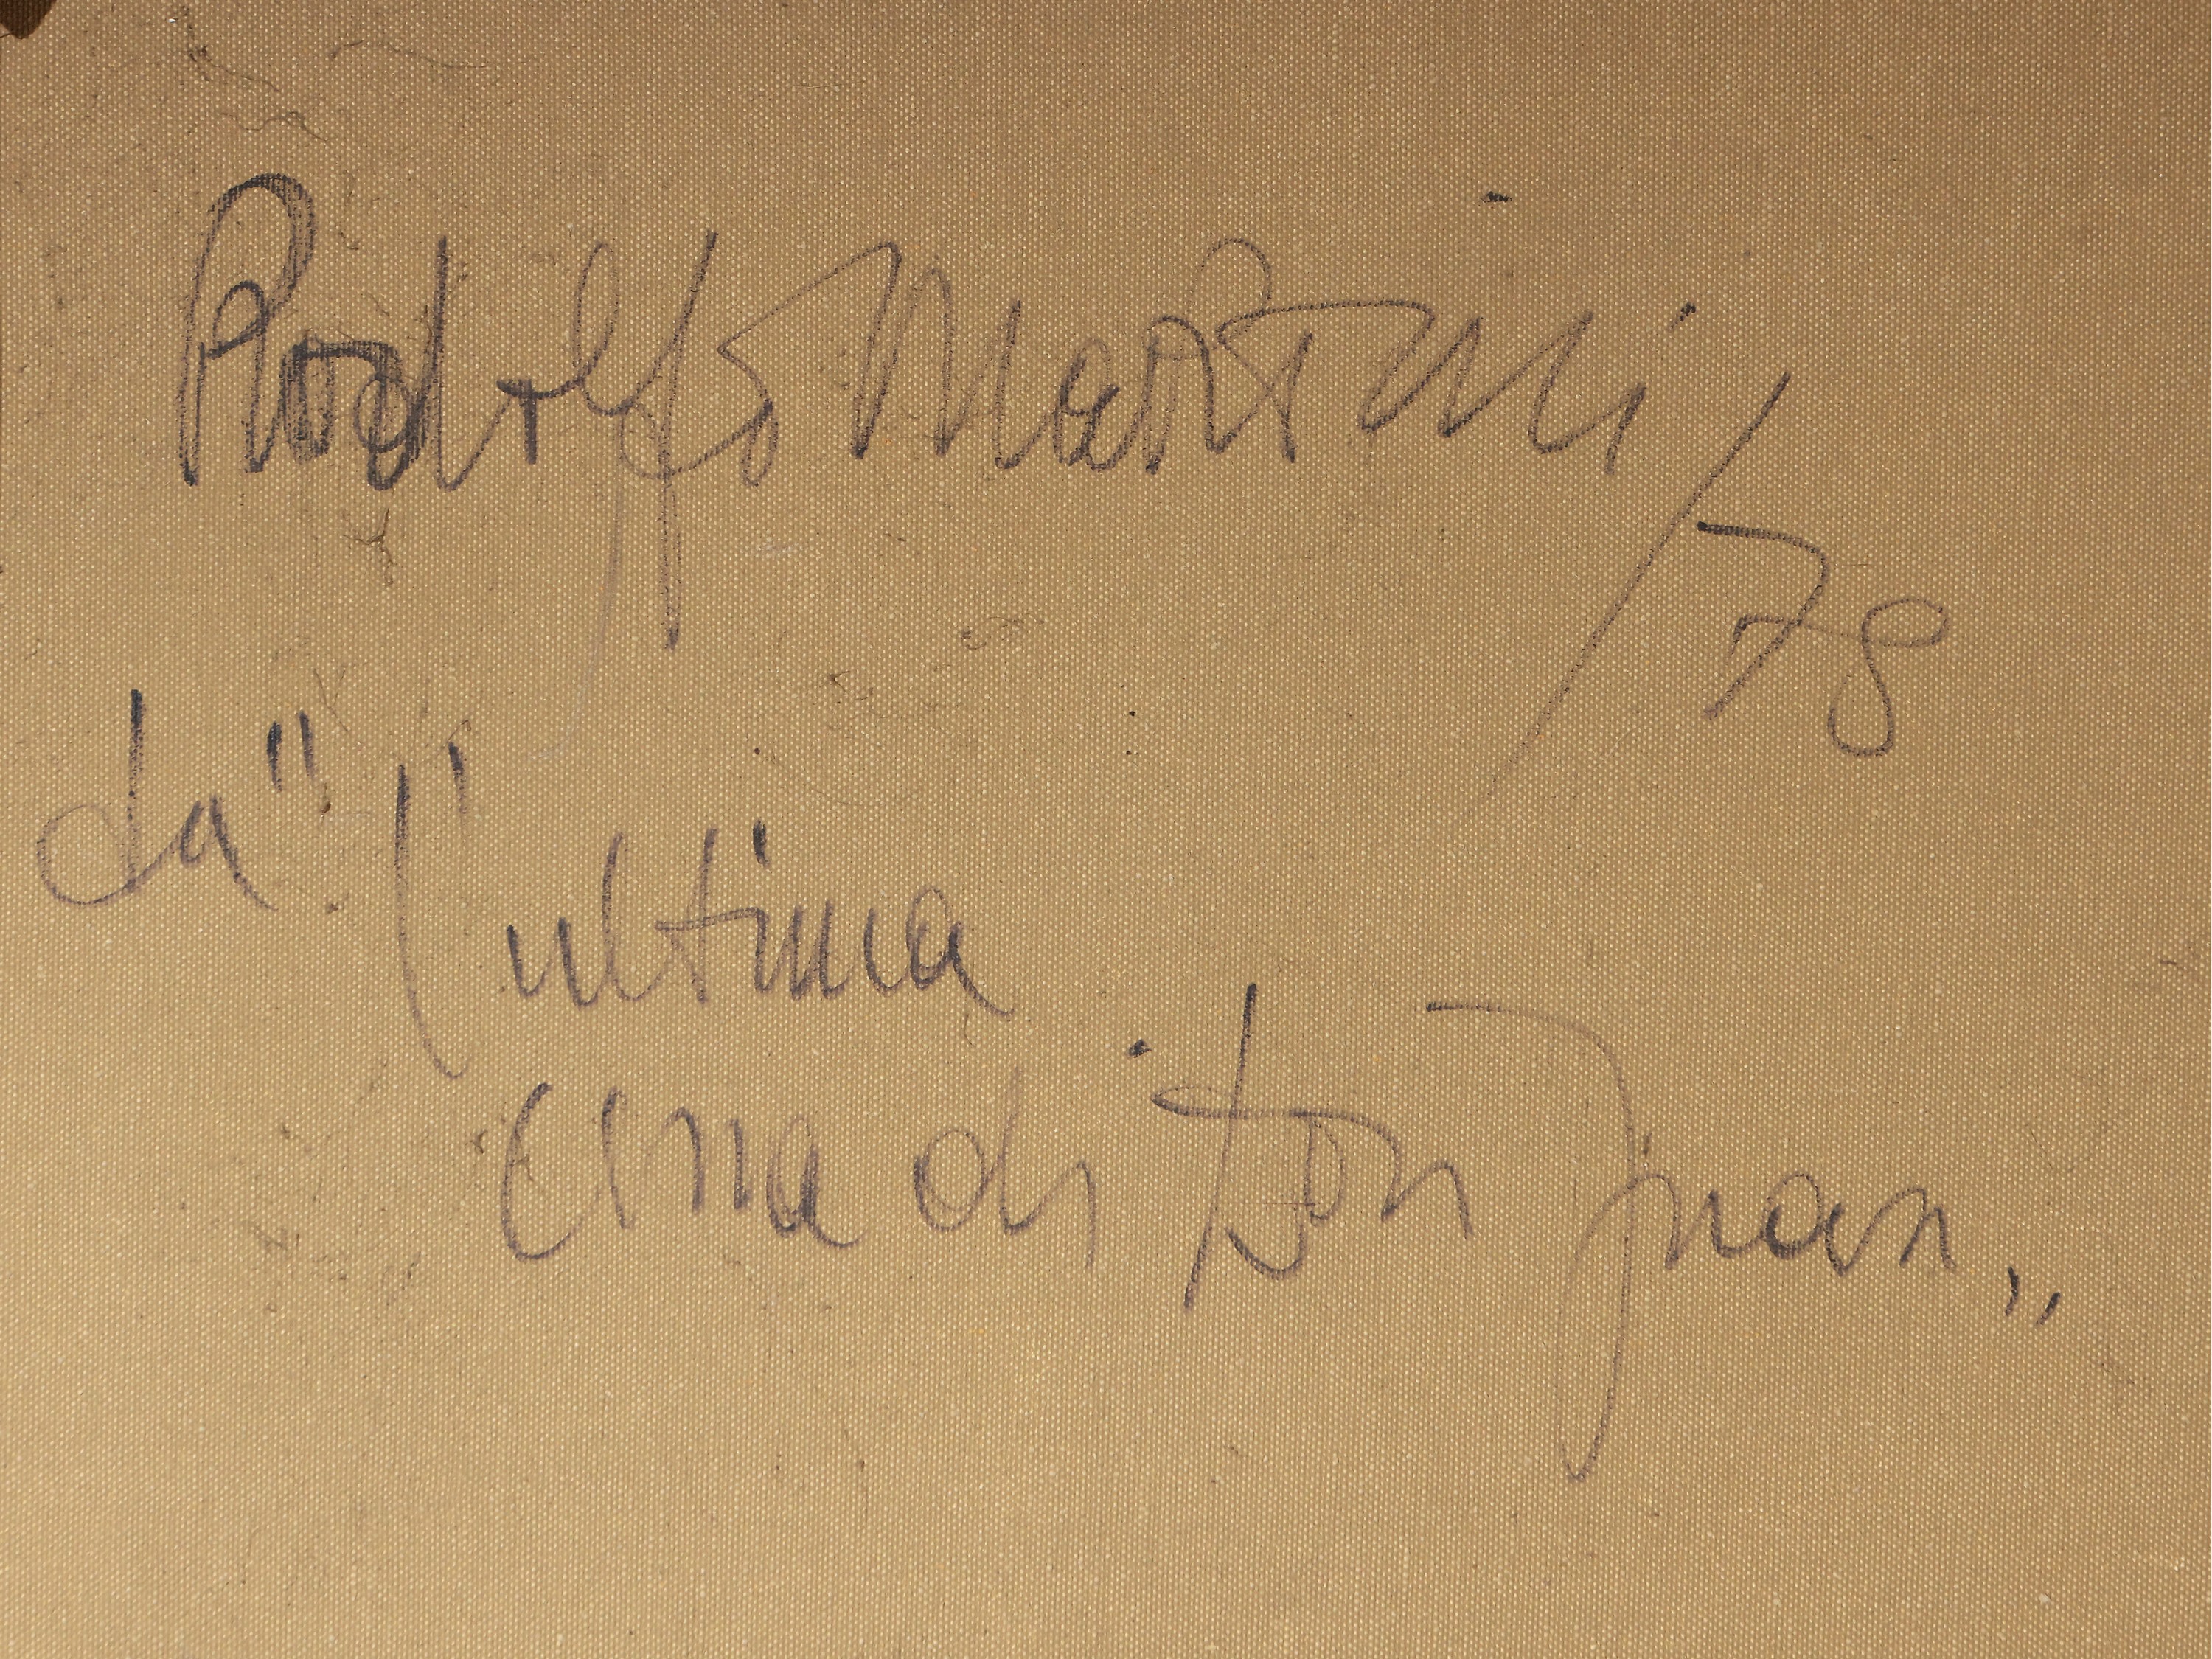 Rodolfo Martini /78
da "l'ultima
cena di Don Juan"